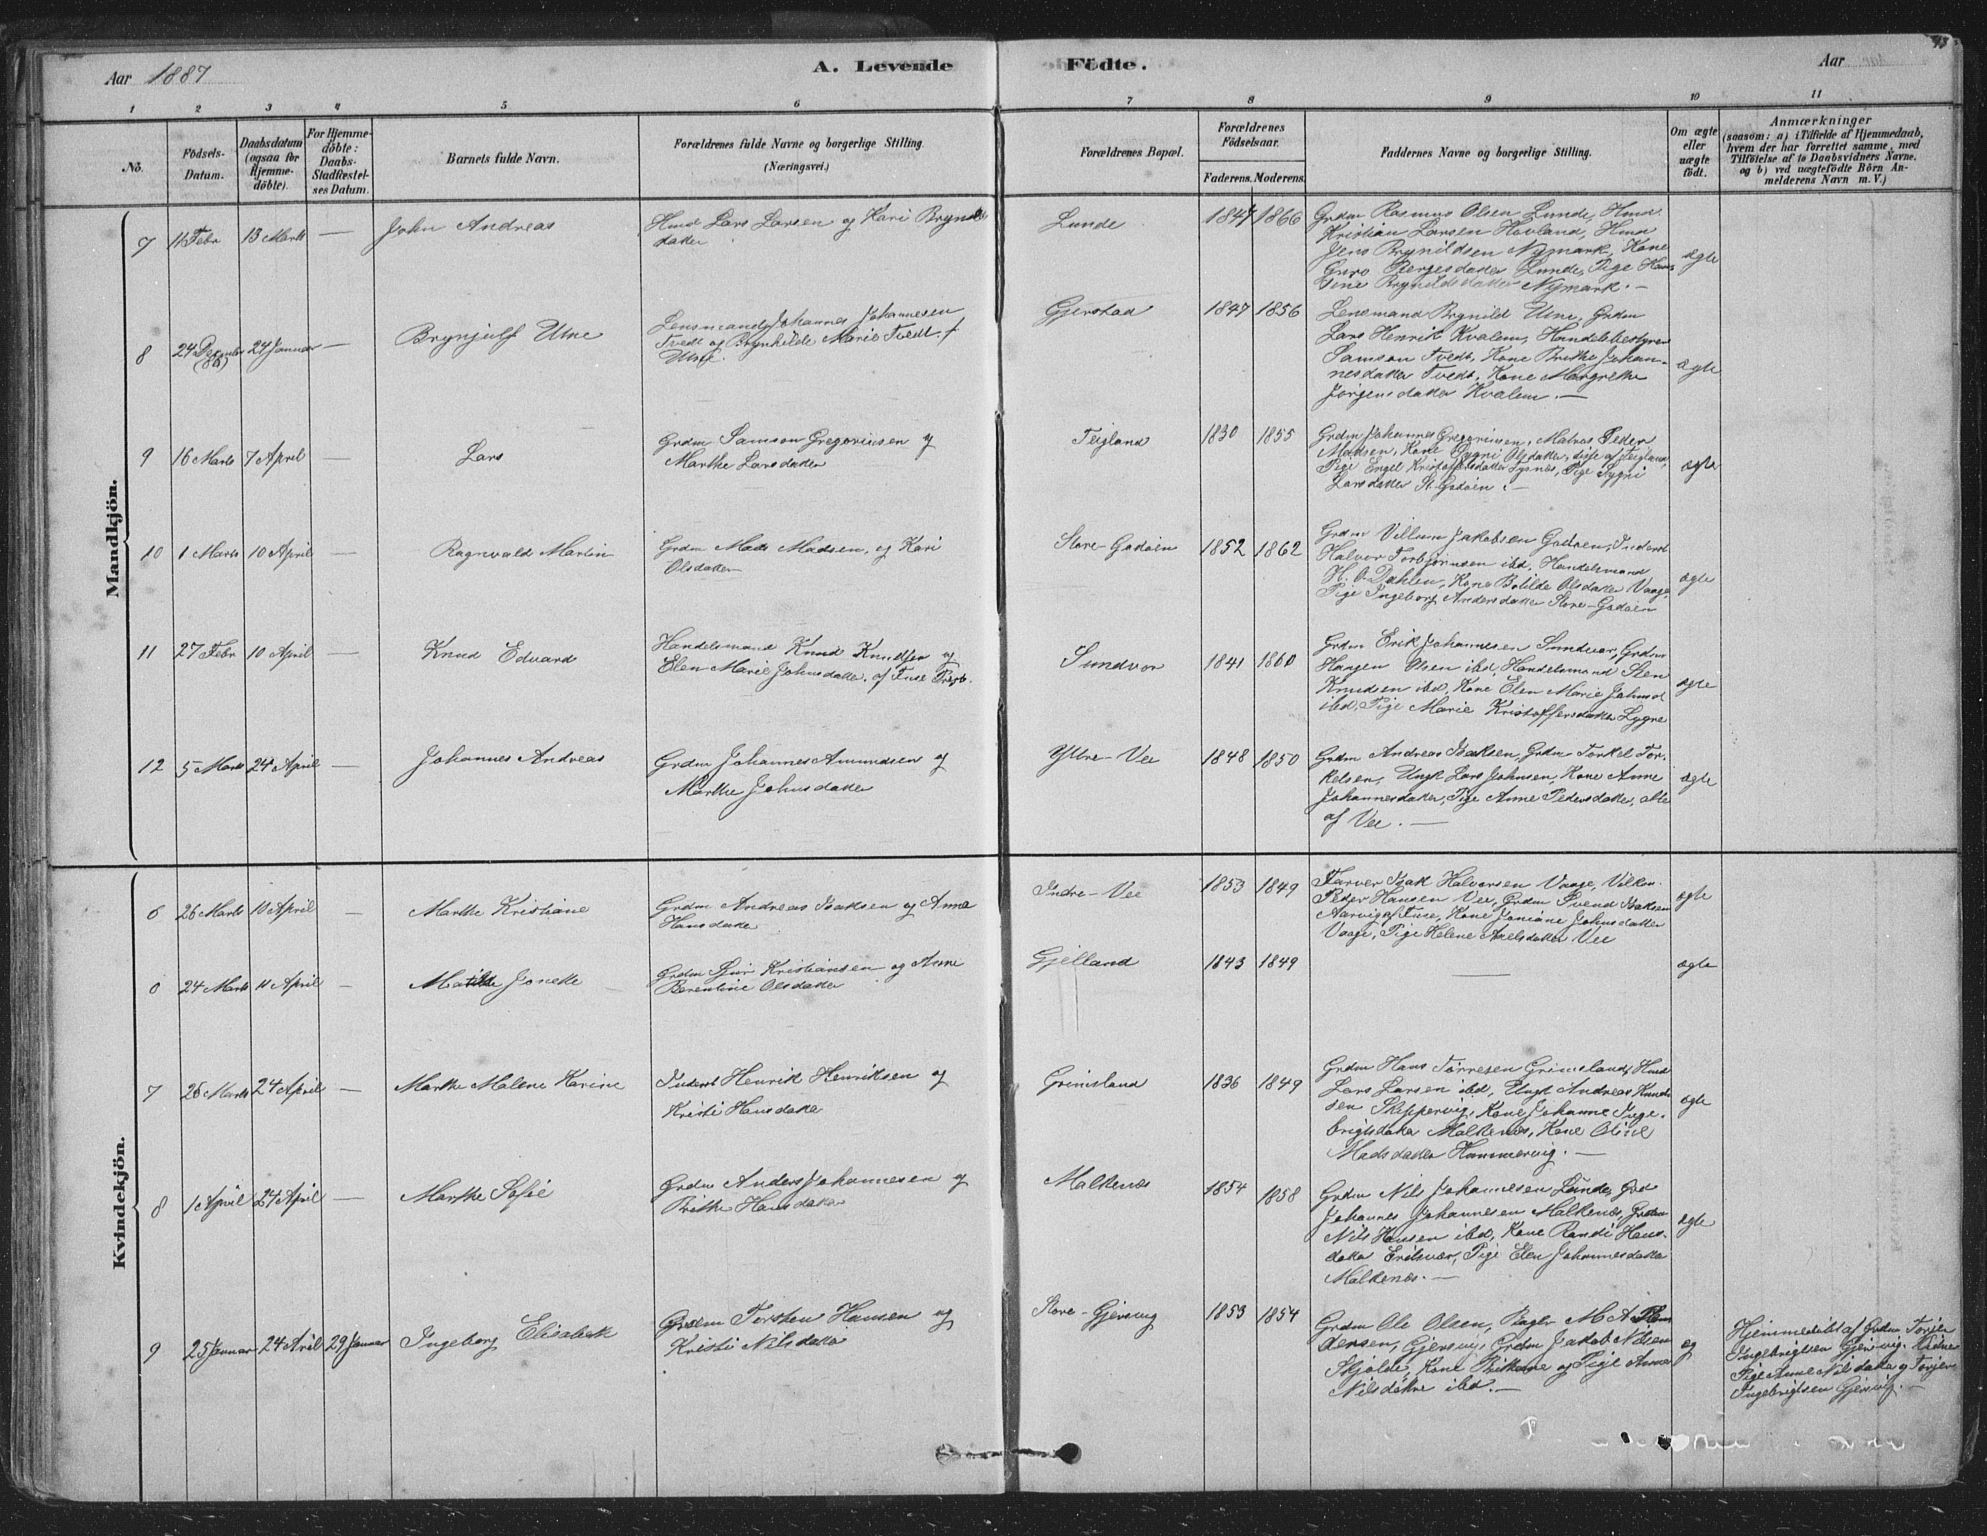 Aar 1887
A. Levende
Födte.
Aar
1
2
3
4
5
6
7
8
9
10
11
No.
Födsels-
Datum.
Daabsdatum
(ogsaa for
Hjemme-
döbte).
For Hjemme-
döbte:
Daabs-
Stadfæstel-
ses Datum.
Barnets fulde Navn.
Forældrenes fulde Navne og borgerlige Stilling.
(Næringsvei.)
Forældrenes Bopæl.
Forældrenes
Födselsaar.
Faderens.
Moderens.
Faddernes Navne og borgerlige Stilling.
Om ægte
eller
uægte
födt.
Anmærkninger
(saasom: a) i Tilfælde af Hjemmedaab,
hvem der har forrettet samme, med
Tilföielse af to Daabsvidners Navne,
og b) ved uægtefödte Börn An-
melderens Navn m. V.)
Mandkjön.
7
11 Febr
13 Marts
—
John Andreas
Hmd Lars Larsen og Kari Brynilds
datter
Lunde
1847
1866
Grdm Rasmus Olsen Lunde, Hmd
Kristian Larsen Hovland, Hmd
Jens Brynildsen Nymark, Kone
Guro Børgesdatter Lunde, Pige Hans
Brynildsdatter Nymark. —
ægte
8
24 Decemb
24 Januar
—
Brynjulf Utne
Lensmand Johannes Johannesen
Tvedt og Brynhilde Marie Tvedt f
Utne.
Gjerstad
1847
1856
Lensmand Brynild Utne, Grdm
Lars Henrik Kvalem, Handelsbestyrer
Samson Tvedt, Kone Brithe Johan-
nesdatter Tvedt, Kone Margrethe
Jörgensdatter Kvalem. —
ægte
9
16 Marts
7 April
—
Lars
Grdm Samson Gregoriusen og
Marthe Larsdatter
Teigland
1830
1855
Grdm Johannes Gregoriusen, Matros Peder
Madsen, Kone Sygni Olsdatter, alle af Teigland,
Pige Engel Kristoffersdatter Tysnes, Pige Sygni
Larsdatter St. Godøen. —
ægte
10
1 Marts
10 April
—
Ragnvald Martin
Grdm Mads Madsen, og Kari
Olsdatter
Store-Godøen
1852
1862
Grdm Villum Jakobsen Godøen, Inderst
Halvor Torbjörnsen ibd, Handelsmand
H. O. Dahlen, Kone Botilde Olsdatter Vaage,
Pige Ingeborg Andersdatter Store-Godøen
ægte
11
27 Febr
10 April
—
Knud Edvard
Handelsmand Knud Knudsen og
Elen Marie Johnsdatter, af Fuse Prgtb.
Sundvor
1841
1860
Grdm Erik Johannesen Sundvor, Grdm
Haagen Olsen ibd, Handelsmand Sten
Knudsen ibd, Kone Elen Marie Johnsd
ibd, Pige Marie Kristoffersdatter Lygre
ægte
12
5 Marts
24 April
—
Johannes Andreas
Grdm Johannes Amundsen og
Marthe Johnsdatter
Ytre-Vee
1848
1850
Grdm Andreas Isaksen, Grdm Torkel Tor-
kelsen, Ungk Lars Johnsen, Kone Anne
Johannesdatter, Pige Anne Pedersdatter, alle
af Vee. —
ægte
Kvindekjön.
6
26 Marts
10 April
—
Marthe Kristiane
Grdm Andreas Isaksen og Anne
Hansdatter
Indre-Vee
1853
1849
Farver Isak Halvorsen Vaage,
Peder Hansen Vee, Grdm Svend Isaksen
Aarvig af Fuse, Kone Joniane Johnsdatter
Vaage, Pige Helene Axelsdatter Vee
ægte
6
24 Marts
11 April
—
Matilde Jonette
Grdm Sjur Kristiansen og Anne
Berentine Olsdatter
Gjelland
1843
1849
—
ægte
7
26 Marts
24 April
—
Marthe Malene Karine
Inderst Henrik Henriksen og
Kristi Hansdatter
Grimsland
1836
1849
Grdm Hans Tørresen Grimsland, Hmd
Lars Larsen ibd, Ungk Andreas Knud-
sen Skippervig, Kone Johanne Inge-
brigtsdatter Malkenes, Kone Oline
Madsdatter Hammervig. —
ægte
8
1 April
24 April
—
Marthe Sofie
Grdm Anders Johannesen og
Brithe Hansdatter
Malkenes
1854
1858
Grdm Nils Johannesen Lunde,
Johannes Johannesen Malkenes, Grdm
Nils Hansen ibd, Kone Randi Hans-
datter Ersvær, Pige Elen Johannesdatter
Malkenes. —
ægte
9
25 Januar
24 Aril
29 Januar
Ingeborg Elisabeth
Grdm Torsten Hansen og
Kristi Nilsdatter
Store-Gjersvig
1853
1854
Grdm Ole Olsen, Bager M A
densen, Gjersvig, Grdm Jakob Nilsen
Skjolde, Kone Brithe ibd og Pige Anna
Nilsdatter ibd. —
æg
Hjemmedöbt af Grdm Torjer
Ingebrigtsen Gjersvig. Vidne
Pige Anne Nilsdatter og Torjer
Ingebrigtsen Gjersvig. —